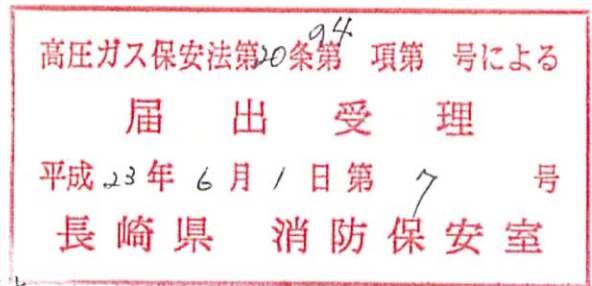 高圧ガス保安法第20条第94項第 号による
届出受理
平成23年6月1日第7号
長崎県 消防保安室